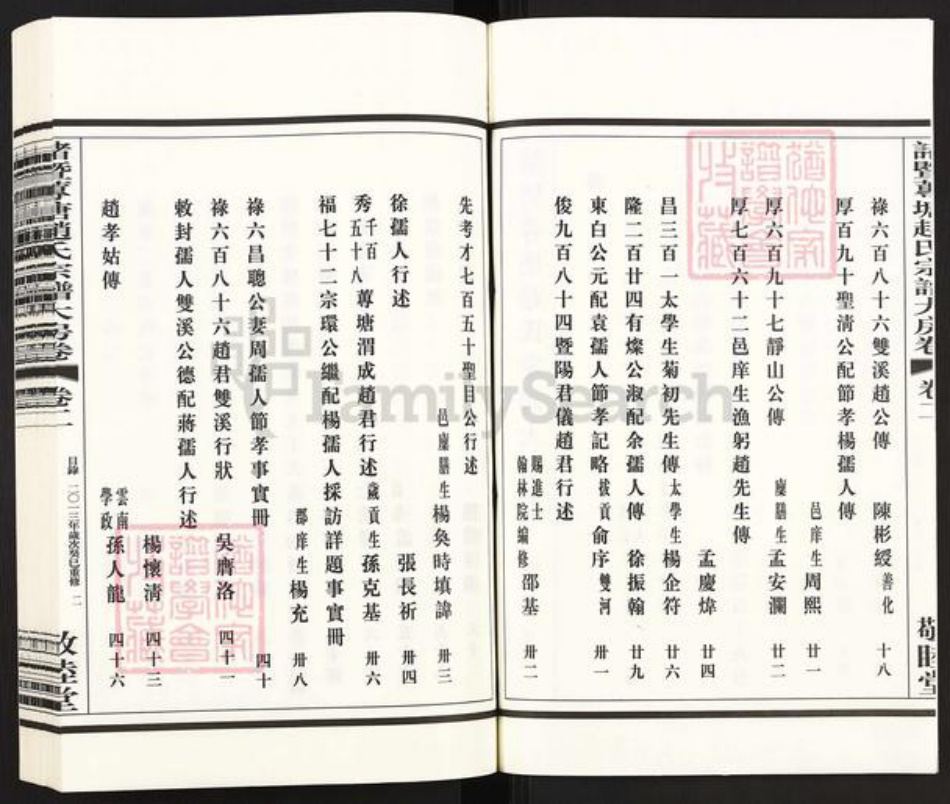 祿六百八十六雙溪趙公傳 陳彬綬善化 十八
厚百九十聖清公配節孝楊孺人傳 邑庠生周熙 廿一
厚六百九十七靜山公傳 廩膳生孟安瀾 廿二
厚七百六十二邑庠生漁躬趙先生傳 孟慶煒 廿四
昌三百一太學生菊初先生傳 太學生楊企符 廿六
隆二百廿四有燦公淑配余孺人傳 徐振翰 廿九
東白公元配袁孺人節孝記略 拔貢俞序雙河 卅一
俊九百八十四暨陽君儀趙君行述 賜進士翰林院編修邵基 卅二
敬睦堂
先考才七百五十聖目公行述 邑廩膳生楊奐時填諱 卅三
徐孺人行述 張長祈 卅四
秀千百五十八蓴塘渭成趙君行述 歲貢生孫克基 卅六
福七十二宗環公繼配楊孺人採訪詳題事實冊 郡庠生楊充 卅八
祿六昌聰公妻周孺人節孝事實冊 四十
祿六百八十六趙君雙溪行狀 吳膺洛 四十一
敕封孺人雙溪公德配蔣孺人行述 楊懷清 四十三
趙孝姑傳 雲南學政孫人龍 四十六
諸暨蓴塘趙氏宗譜大房卷 卷二 目錄 二〇一三年歲次癸巳重修 二 敬睦堂
FamilySearch